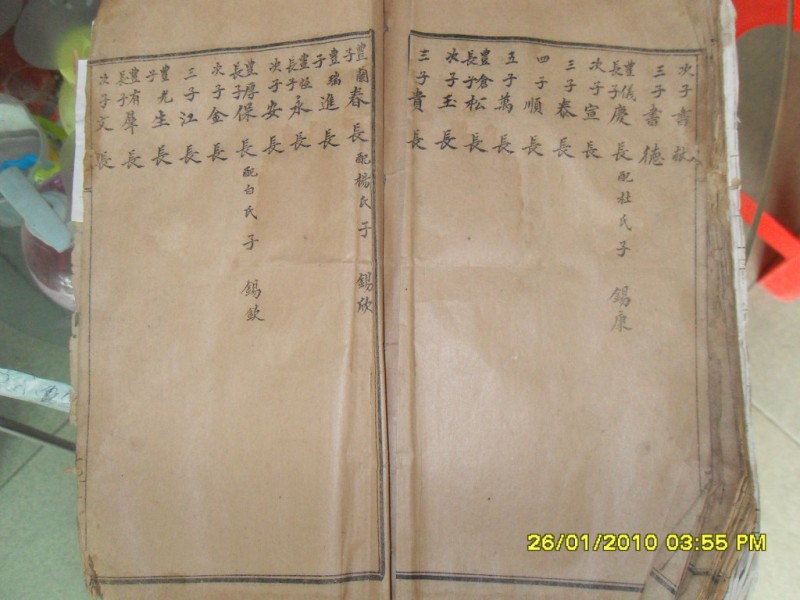 次子書
三子書德
豐儀長子慶長配杜氏子 錫康
次子宣長
三子泰長
四子順長
五子萬長
豐倉長子松長
次子玉長
三子貴長
豐蘭子春長配楊氏子 錫欣
豐瑞子進長
豐恒長子永長
次子安長
豐厚長子保長配白氏子 錫
次子金長
三子江長
豐光子生長
豐有長子聲長
次子文長
26/01/2010 03:55 PM